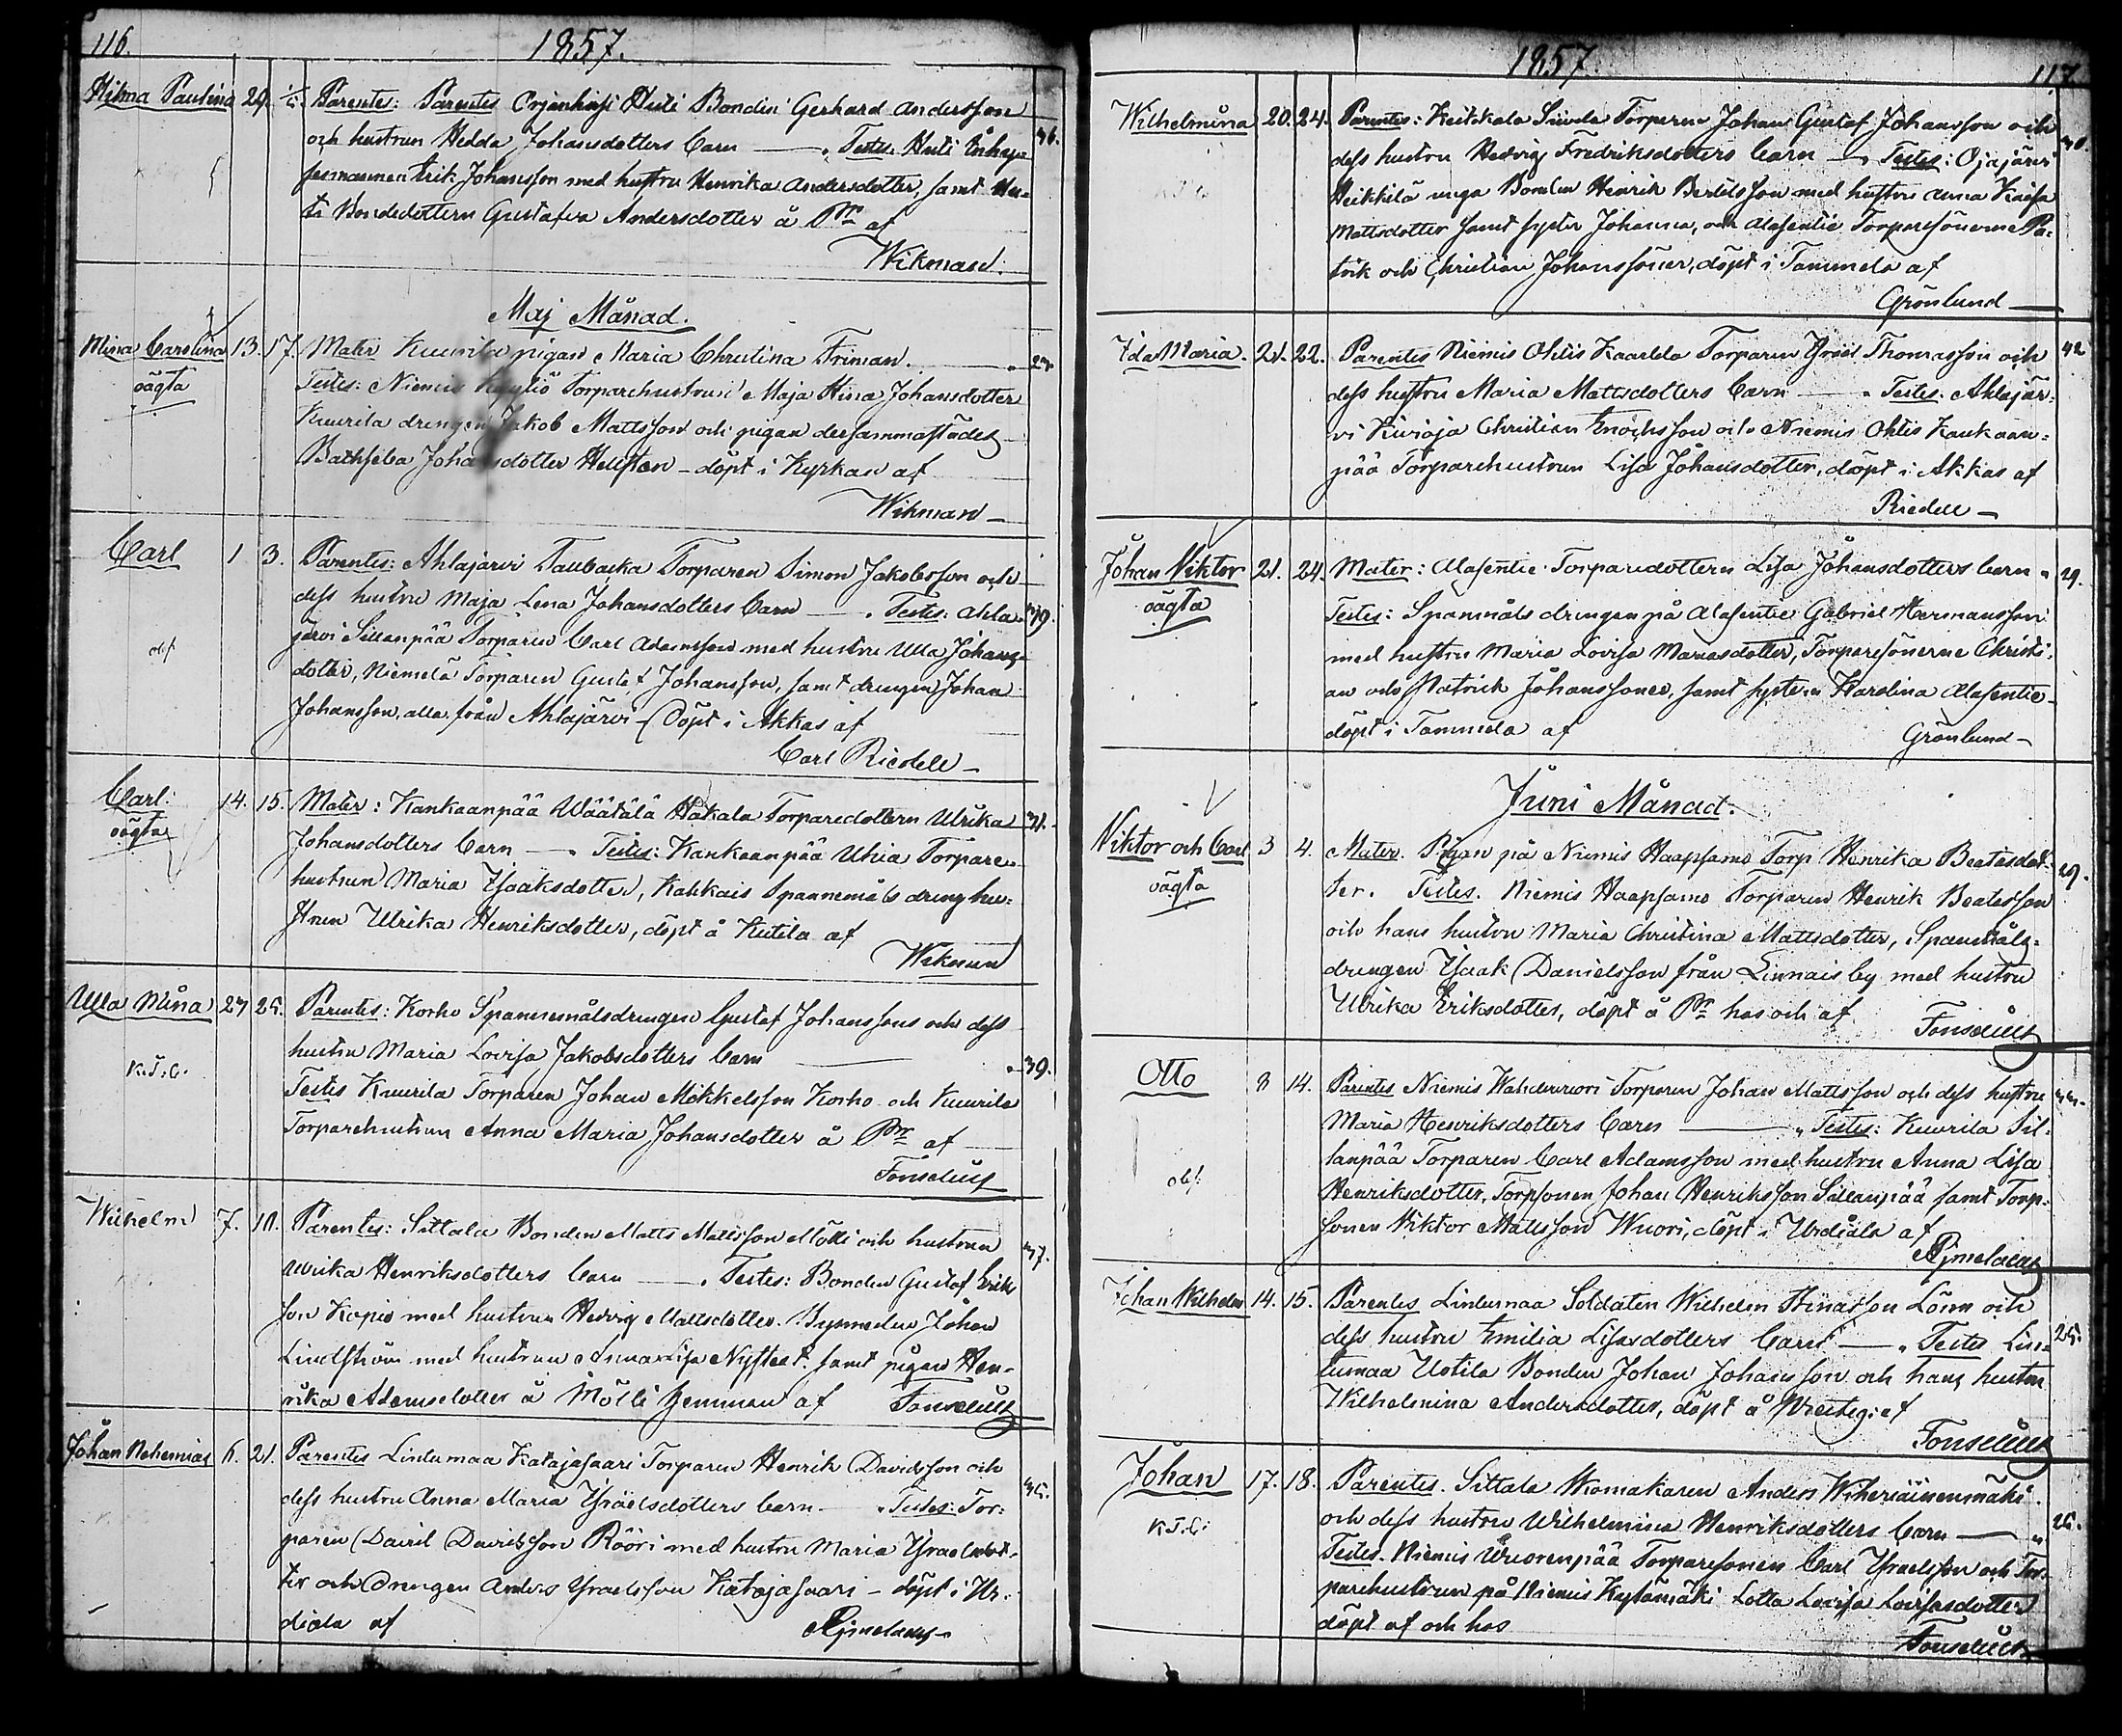 116.
1857.
Hilma Paulina 29. 1/5. Parentes: Parentes Orjenhinsi Huti Bonden Gerhard Andersson 36.
och hustrun Hedda Johansdotters barn — Testes: Huti Inhyse
Erik Johansson med hustru Henrika Andersdotter, samt Hu-
ti Bondedottern Gustafva Andersdotter å Pr af
Wikman.
Maj Månad.
Mina Carolina 13. 17. Mater Kuurila pigan Maria Christina Friman. 27.
oägta Testes: Niemis Torparehustrun Maja Stina Johansdotter
Kuurila drengen Jakob Mattsson och pigan dersammastädes
Bathseba Johansdotter Hellsten - döpt i Kyrkan af
Wikman -
Carl 1 3. Parentes: Ahlajärvi Taubacka Torparen Simon Jakobsson och
dess hustru Maja Lena Johansdotters barn — Testes: Ahla- 39.
järvi Sillanpää Torparen Carl Adamsson med hustru Ulla Johans-
dotter, Niemelä Torparen Gustaf Johansson, samt drengen Johan
Johansson, alla från Ahlajärvi - Döpt i Akkas af
Carl Riedell -
Carl: 14. 15. Mater: Kankaanpää Wäätälä Hakala Torparedottern Ulrika 31.
oägta Johansdotters barn — Testes: Kankaanpää Uhia Torpare-
hustrun Maria Isaaksdotter, Kakkais Spannemåls dreng hu-
strun Ulrika Henriksdotter, döpt å Kutila af
Wikman
Ulla Mina 23 25. Parentes: Korho Spannemålsdrengen Gustaf Johanssons och dess
hustru Maria Lovisa Jakobsdotters barn — 39.
K.T.C. Testes Kuurila Torparen Johan Mikkelsson Korho och Kuurila
Torparehustrun Anna Maria Johansdotter å Pr af
Fonselius
Wilhelm 7. 10. Parentes: Sittala Bonden Matts Mattsson Mölli och hustrun 37.
Ulrika Henriksdotters barn — Testes: Bonden Gustaf Erik-
son Kopio med hustrun Hedvig Mattsdotter. Johan
Lindström med hustrun Anna Lisa Nystedt. samt pigan Hen-
rika Adamsdotter å Mölli hemman af Fonselius
Johan Nehemias 6. 21. Parentes Lintumaa Katajasaari Torparen Henrik Davidsson och 35.
dess hustru Anna Maria Israelsdotters barn — Testes: Tor-
paren David Davidsson Rööri med hustru Maria Israelsdot-
ter och Drengen Anders Israelsson Katajasaari - döpt i Ur-
diala af Ajmelaeus -
1857
117
Wilhelmina 20. 24. Parentes: Keikkala Siuvola Torparen Johan Gustaf Johansson och
dess hustru Hedvig Fredriksdotters barn — Testes: Ojajärvi
Heikkilä unga Bonden Henrik Bertilsson med hustru Anna Kaisa
Mattsdotter samt syster Johanna, och Alasentie Torparesönerne Pa-
trik och Christian Johanssöner, döpt i Tammela af
Grönlund —
Ida Maria. 21. 22. Parentes Niemis Ohlis Kaarlela Torparen Israel Thomasson och 42
dess hustru Maria Mattsdotters barn — Testes: Ahlajär-
vi Kivioja Christian Enochsson och Niemis Ohlis Kankaan-
pää Torparehustrun Lisa Johansdotter, döpt i Akkas af
Riedell -
Johan Viktor 21. 24. Mater: Alasentie Torparedottern Lisa Johansdotters barn 29.
oägta Testes: Spannmåls drengen på Alasentie Gabriel Hermansson
med hustru Maria Lovisa Mariasdotter, Torparesönerne Christi-
an och Patrick Johanssoner, samt systern Karolina Alasentie
döpt i Tammela af Grönlund -
Juni Månad.
Viktor och Carl 3 4. Mater. Pigan på Niemis Haapsamo Torp Henrika Beatasdot- 29.
oägta ter. Testes. Niemis Haapsamo Torparen Henrik Beatasson
och hans hustru Maria Christina Mattsdotter, Spannmåls-
drengen Isaak Danielsson från Linnais by med hustru
Ulrika Eriksdotter, döpt å Pr hos och af Fonselius
Otto 8 14. Parentes Niemis Wahderivori Torparen Johan Mattsson och dess hustru
Maria Henriksdotters barn — Testes: Kuurila Sil-
lanpää Torparen Carl Adamsson med hustru Anna Lisa
Henriksdotter, Torpsonen Johan Henriksson Sillanpää samt Torp-
sonen Viktor Mattsson Wuori, döpt i Urdiala af
Ajmelaeus
Johan Wilhelm 14. 15. Parentes Lintumaa Soldaten Wilhelm Stinasson Lönn och
dess hustru Emilia Lisasdotters barn — Testes Lin- 25.
tumaa Uotila Bonden Johan Johansson och hans hustru
Wilhelmina Andersdotter, döpt å af
Fonselius
Johan 17. 18. Parentes. Sittala Anders Wiheriäisenmäki
K.T.C. och dess hustru Wilhelmina Henriksdotters barn — 26.
Testes. Niemis Wuorenpää Torparesonen Carl Israelsson och Tor-
parehustrun på Niemis Kytömäki Lotta Lovisa Lovisasdotter
döpt af och hos
Fonselius